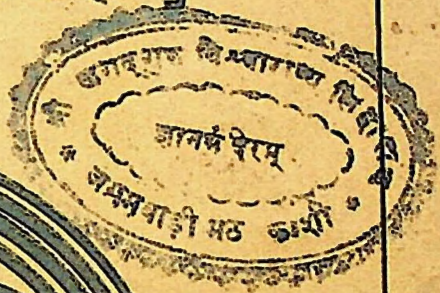 श्री जगद्गुरु विश्वाराध्य
ज्ञानमंदिरम्
जंगमवाड़ी मठ काशी